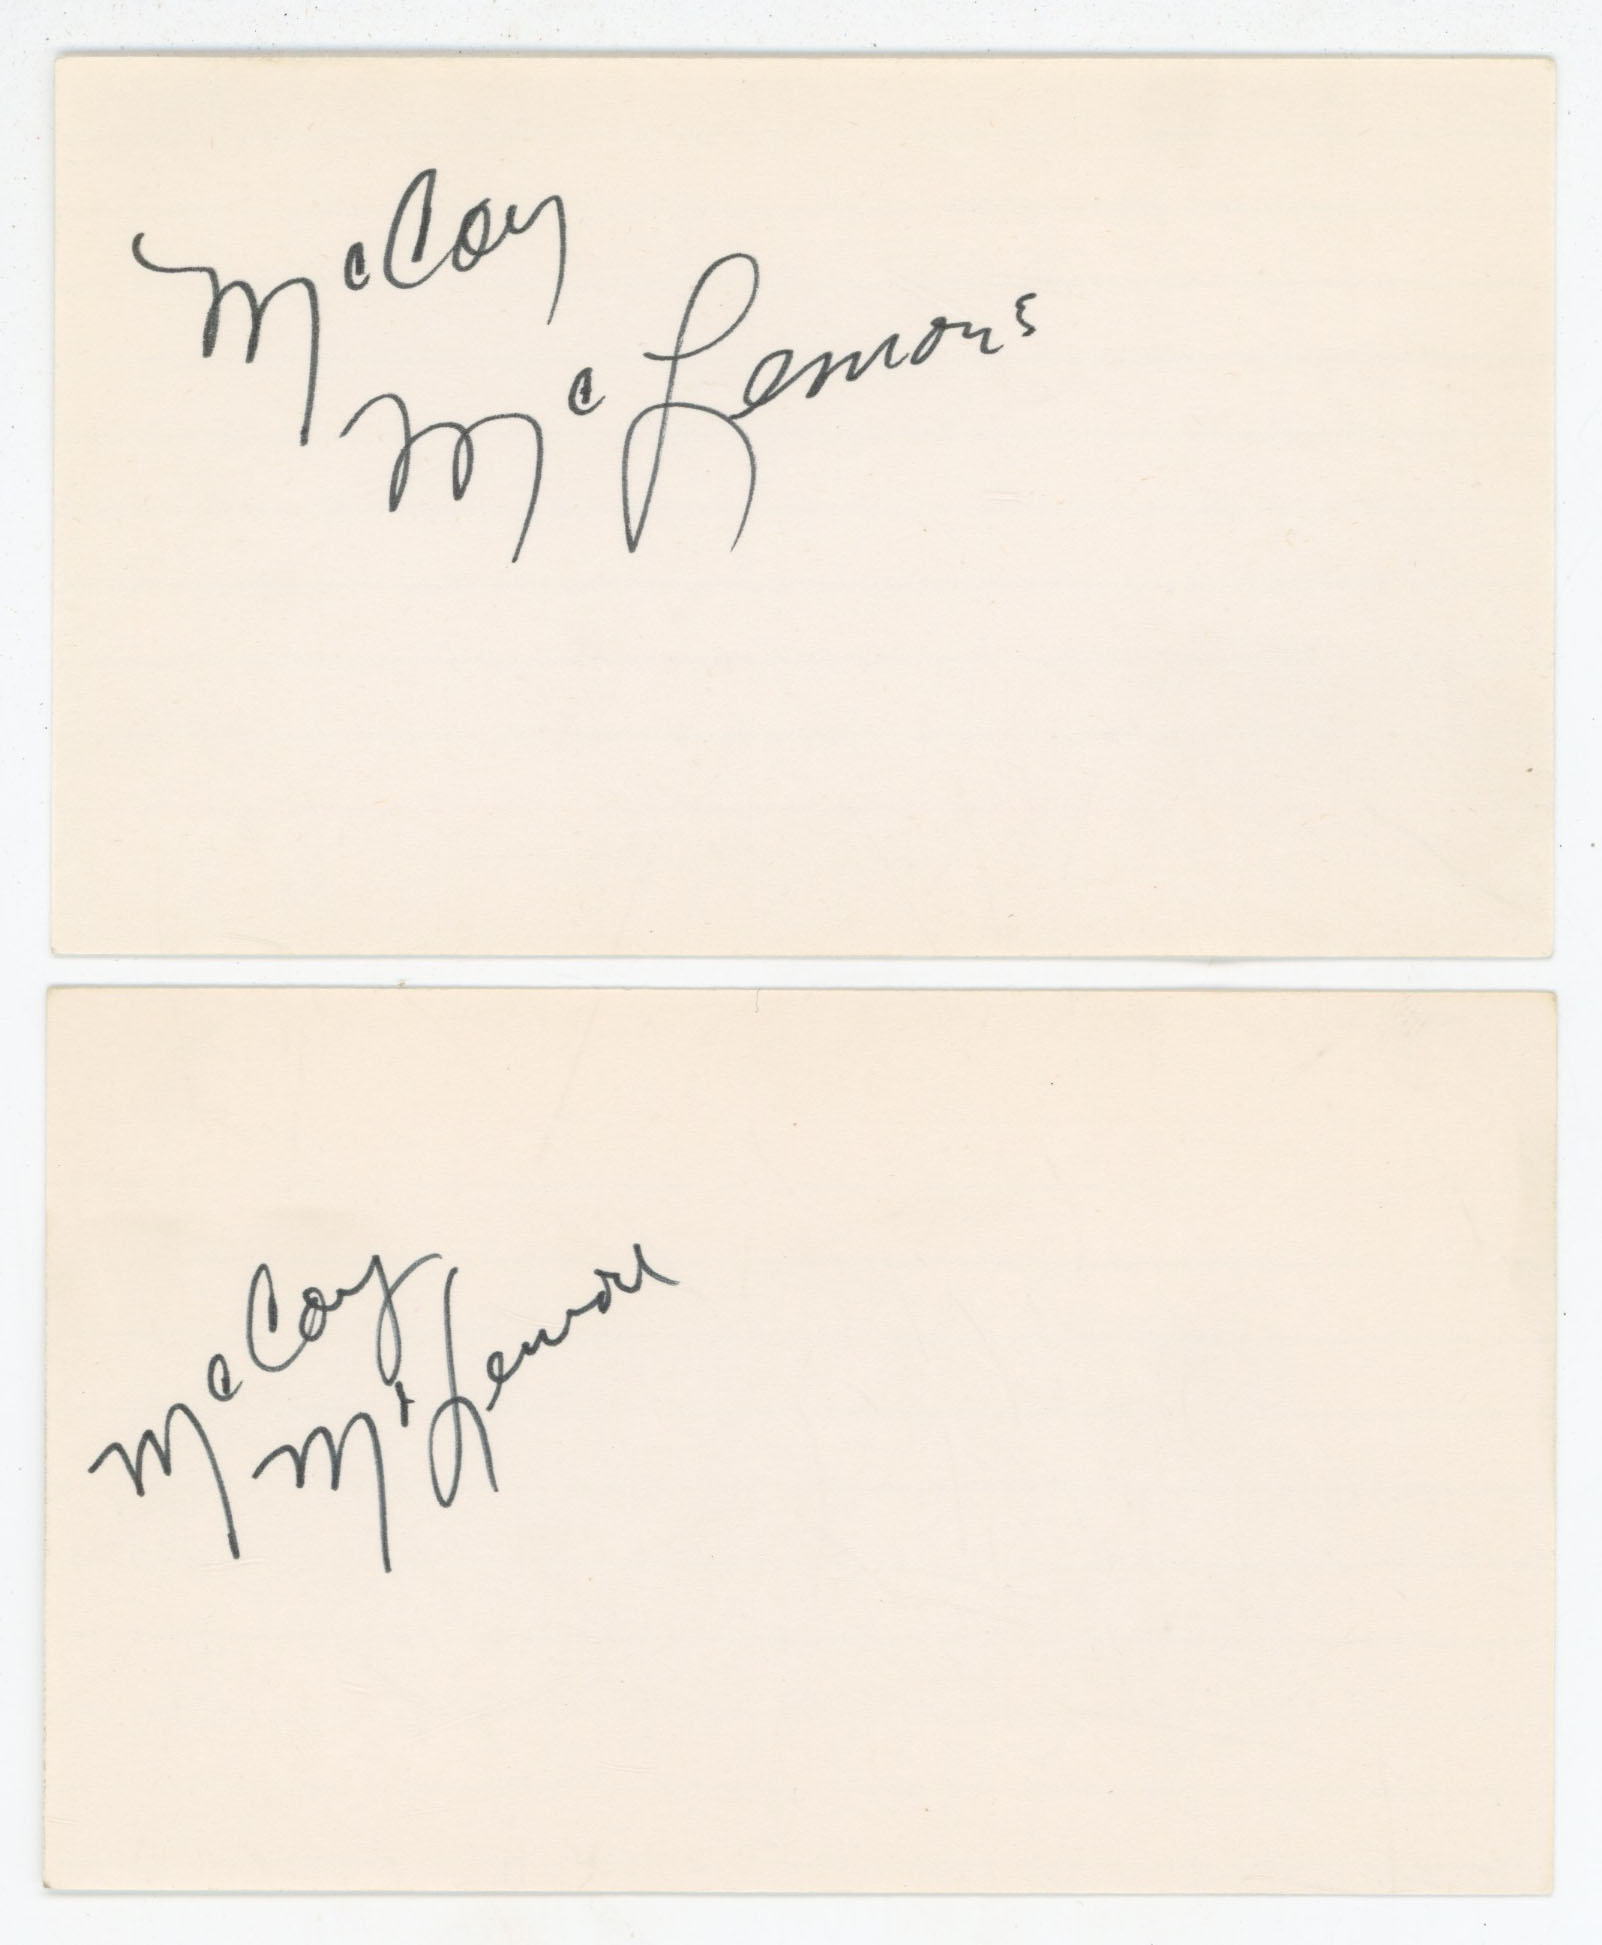 McCoy
McLemore
McCoy
McLemore